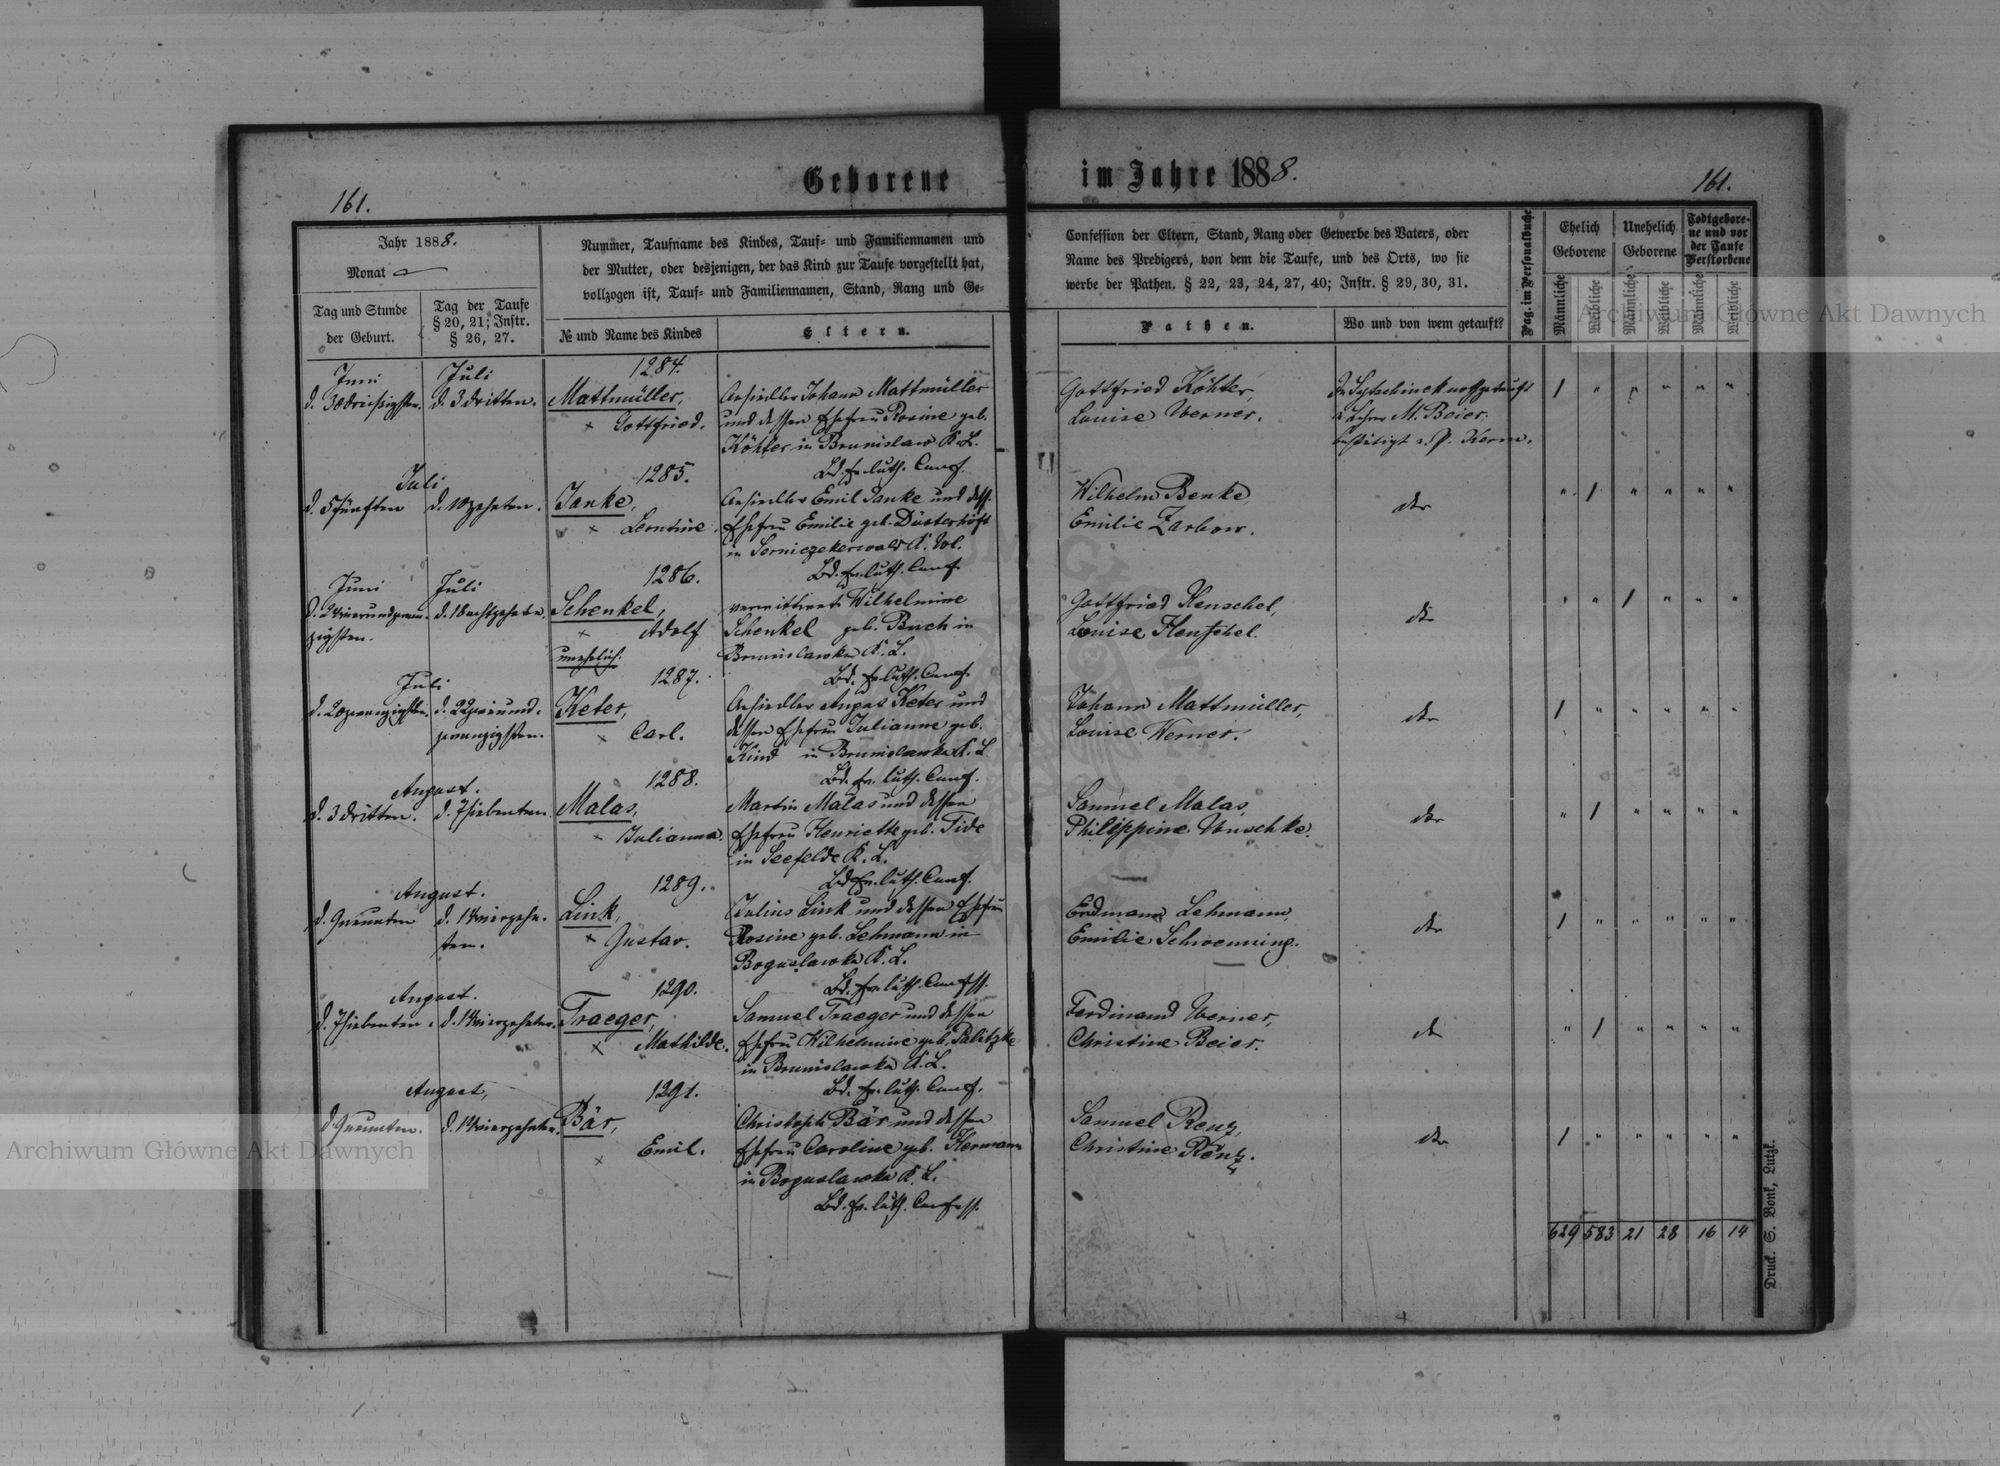 Geborene im Jahre 1888.
161.
161.
Jahr 1888.
Monat
Tag und Stunde
der Geburt.
Tag der Taufe
§ 20, 21; Instr.
§ 26, 27.
Nummer, Taufname des Kindes, Tauf- und Familiennamen und
der Mutter, oder desjenigen, der das Kind zur Taufe vorgestellt hat,
vollzogen ist, Tauf- und Familiennamen, Stand, Rang und Ge-
№ und Name des Kindes
Eltern.
Confession der Eltern, Stand, Rang oder Gewerbe des Vaters, oder
Name des Predigers, von dem die Taufe, und des Orts, wo sie
werbe der Pathen. § 22, 23, 24, 27, 40; Instr. § 29, 30, 31.
Pathen.
Wo und von wem getauft?
Pag. im Personalbuche
Ehelich
Geborene
Unehelich
Geborene
Todtgebore-
ne und vor
der Taufe
Verstorbene
Männliche
Weibliche
Männliche
Weibliche
Männliche
Weibliche
1284.
Juni
d. 30 dreißigsten.
Juli
d. 3 dritten.
Mattmüller,
Gottfried.
Ansiedler Johann Mattmüller
und dessen Ehefrau Rosine geb.
Köhler in Brunislaw K. L.
Bd. ev. luth. Conf.
Gottfried Köhler,
Louise Werner.
Lehrer M. Beier.
bestätigt d. P. Kern.
1285.
Juli
d. 5 fünften
d. 10 zehnten.
Janke,
Leontine.
Ansiedler Emil Janke und dess.
Ehefrau Emilie geb. Düsterhöft
in Serniczekerwald K. Wl.
Bd. ev. luth. Conf.
Wilhelm Benke,
Emilie Zarbow.
1286.
Juni
d. 24 vierundzwan-
zigsten.
Juli
d. 18 achtzehnten.
Schenkel,
Adolf
unehelich.
verwittwete Wilhelmine
Schenkel geb. Buch in
Brunislawka K. L.
Bd. ev. luth. Conf.
Gottfried Henschel,
Louise Henschel.
1287.
Juli
d. 20 zwanzigsten.
d. 22 zweiund-
zwanzigsten.
Keter,
Carl.
Ansiedler August Keter und
dessen Ehefrau Julianne geb.
Kind in Brunislawka K. L.
Bd. ev. luth. Conf.
Johann Mattmüller,
Louise Werner.
1288.
August.
d. 3 dritten.
d. 7 siebenten.
Malas,
Julianna.
Martin Malas und dessen
Ehefrau Henriette geb. Tide
in Seefelde K. L.
Bd. ev. luth. Conf.
Samuel Malas,
Philippine Wuschke.
1289.
August.
d. 9 neunten
d. 14 vierzehn-
ten.
Link,
Gustav.
Julius Link und dessen Ehefrau
Rosine geb. Lehmann in
Boguslawka K. L.
Bd. ev. luth. Confess.
Erdmann Lehmann,
Emilie Schroenning.
1290.
August.
d. 7 siebenten.
d. 14 vierzehnten.
Traeger,
Mathilde.
Samuel Traeger und dessen
Ehefrau Wilhelmine geb. Palitzke
in Brunislawka K. L.
Bd. ev. luth. Conf.
Ferdinand Werner,
Christine Beier.
1291.
August,
d. 9 neunten.
d. 14 vierzehnten.
Bär,
Emil.
Christoph Bär und dessen
Ehefrau Caroline geb. Hermann
in Boguslawka K. L.
Bd. ev. luth. Confess.
Samuel Renz,
Christine Renz.
629 583 21 28 16 14
Druck. S. Bonk, Lutzk.
Archiwum Główne Akt Dawnych
Archiwum Główne Akt Dawnych